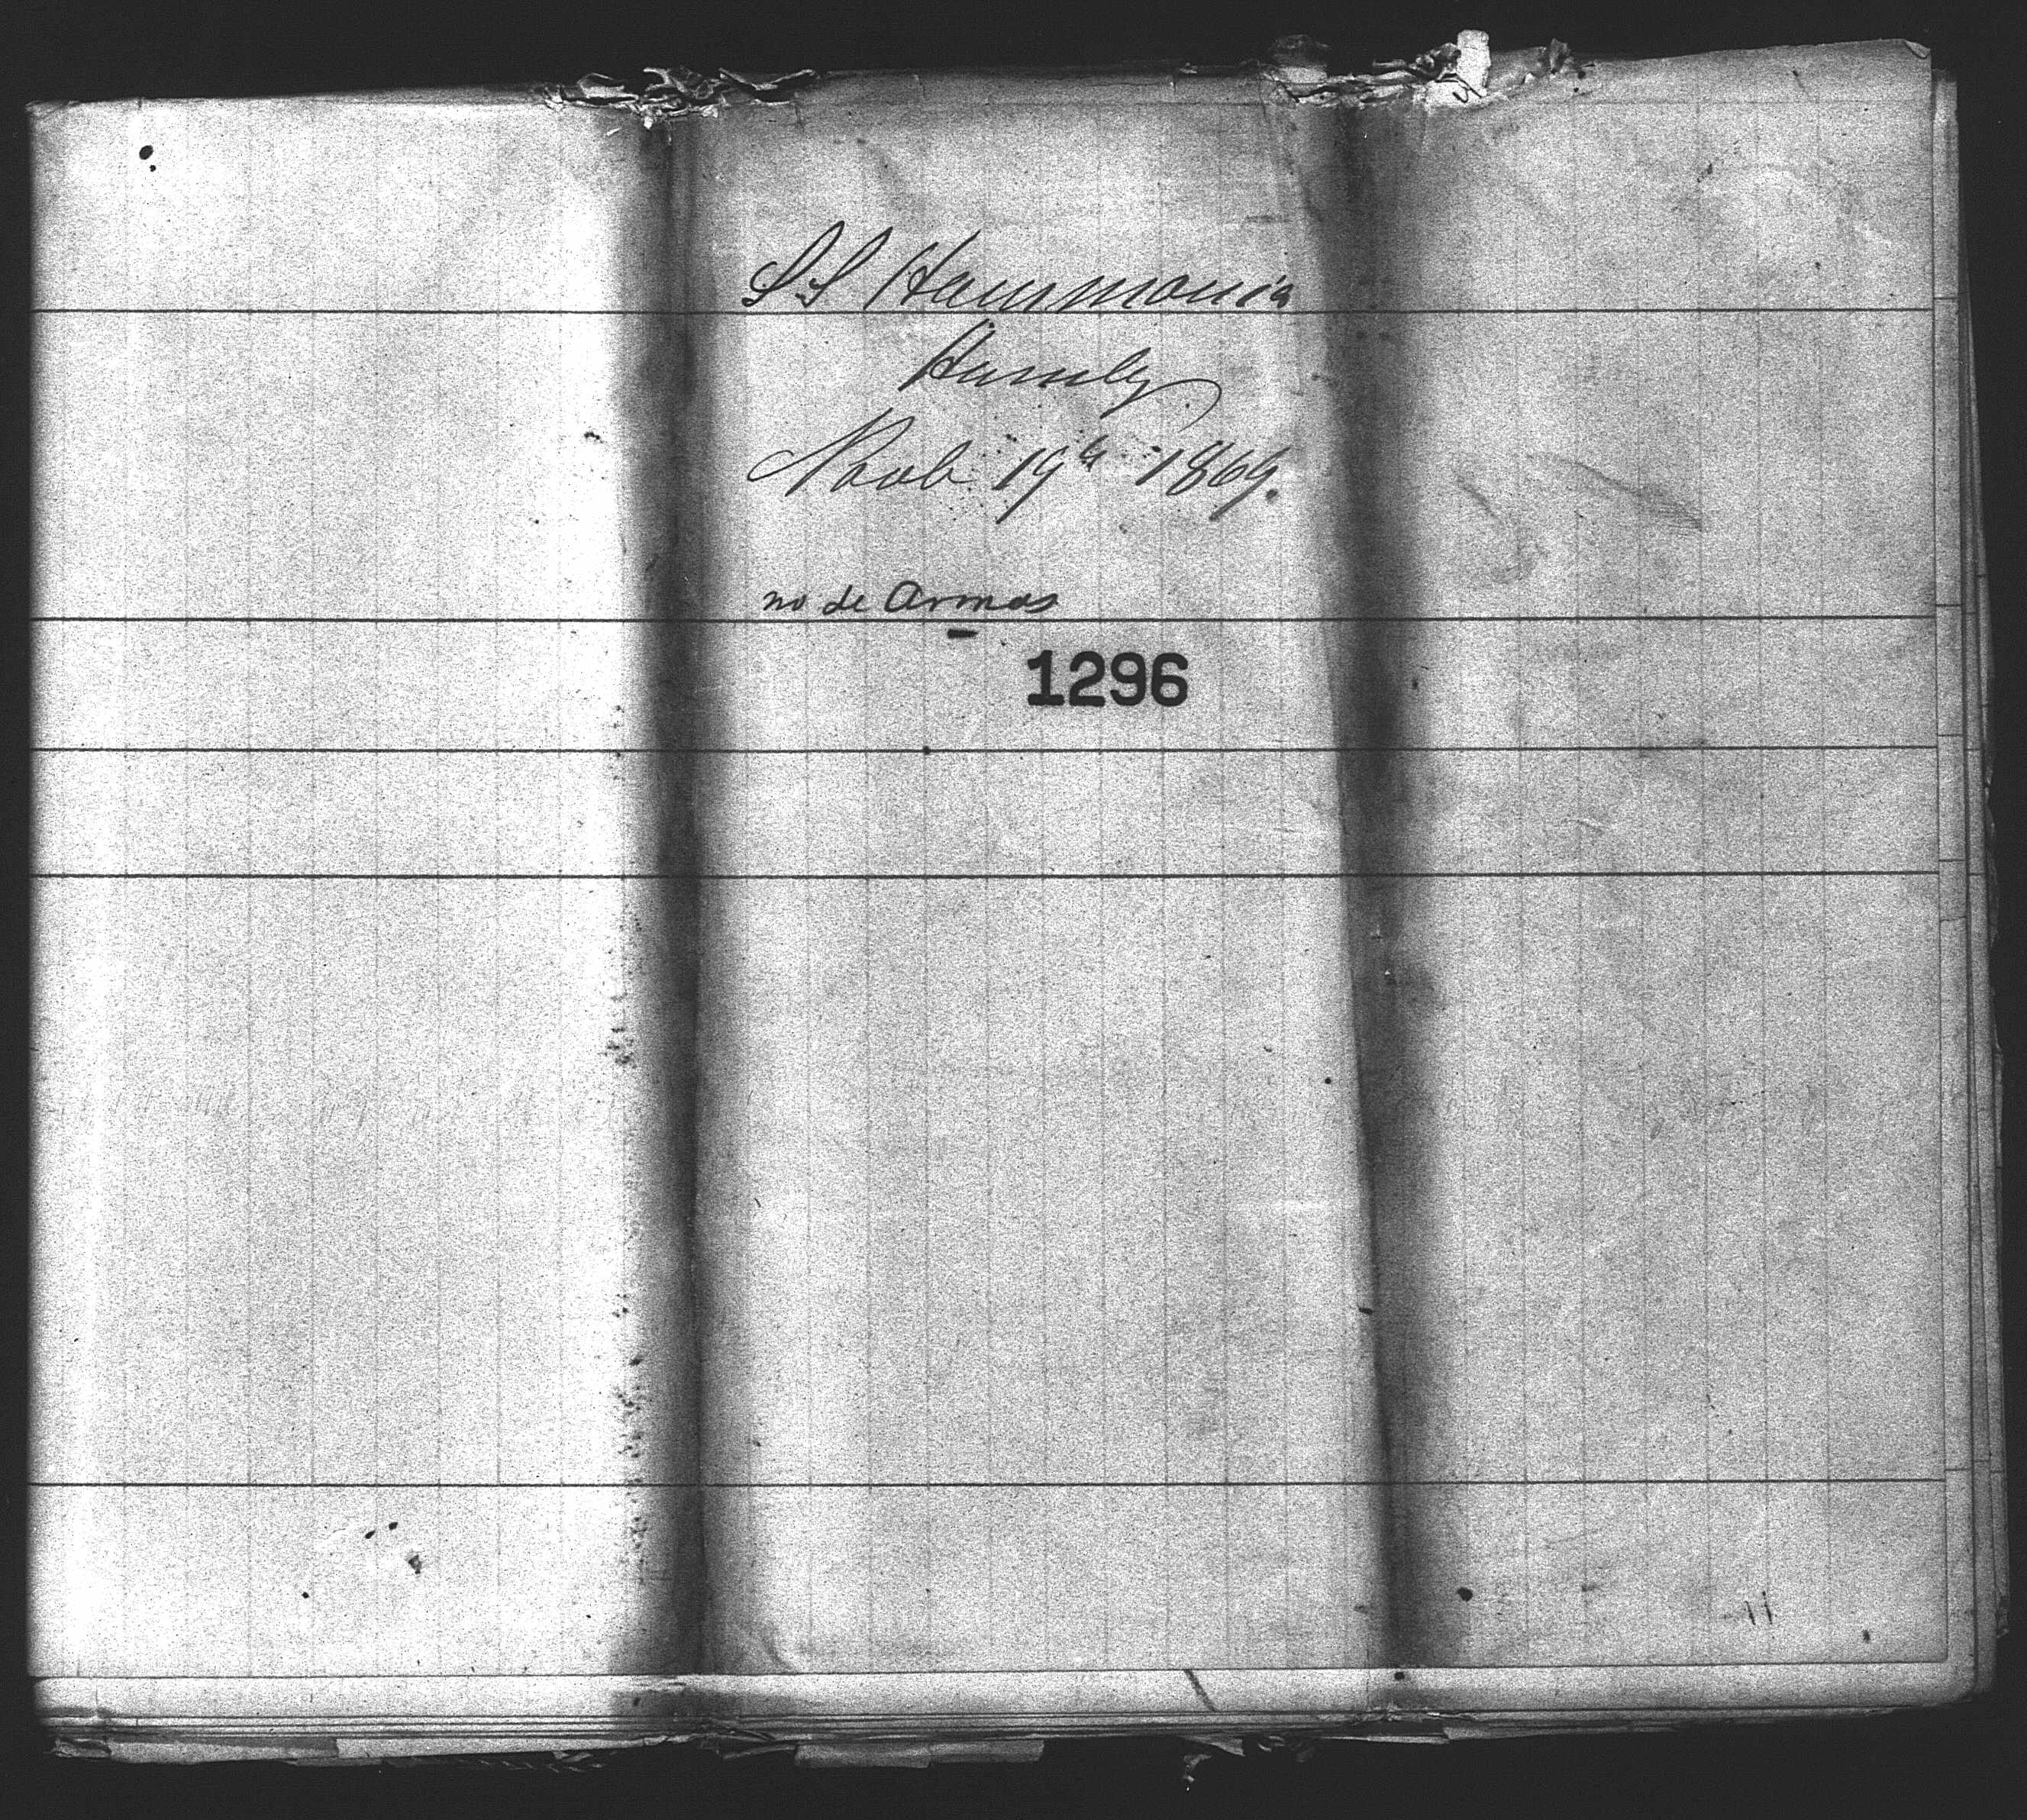 SS Hammonia
Hambg
Novb 19th 1869.
no de Armas
1296